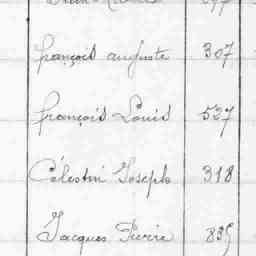 françois auguste 307
françois Louis 527
Célestin Joseph 318
Jacques Pierre 835